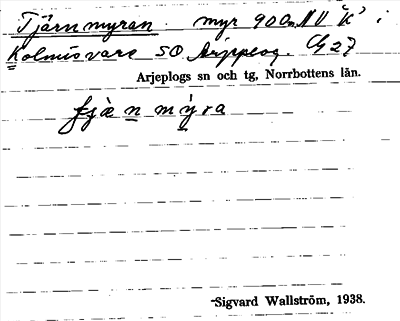 Tjärnmyran. myr 900 m NV "K" i
Kolmisvare SO Arjeplog. G 27
Arjeplogs sn och tg, Norrbottens lån.
Sigvard Wallström, 1938.